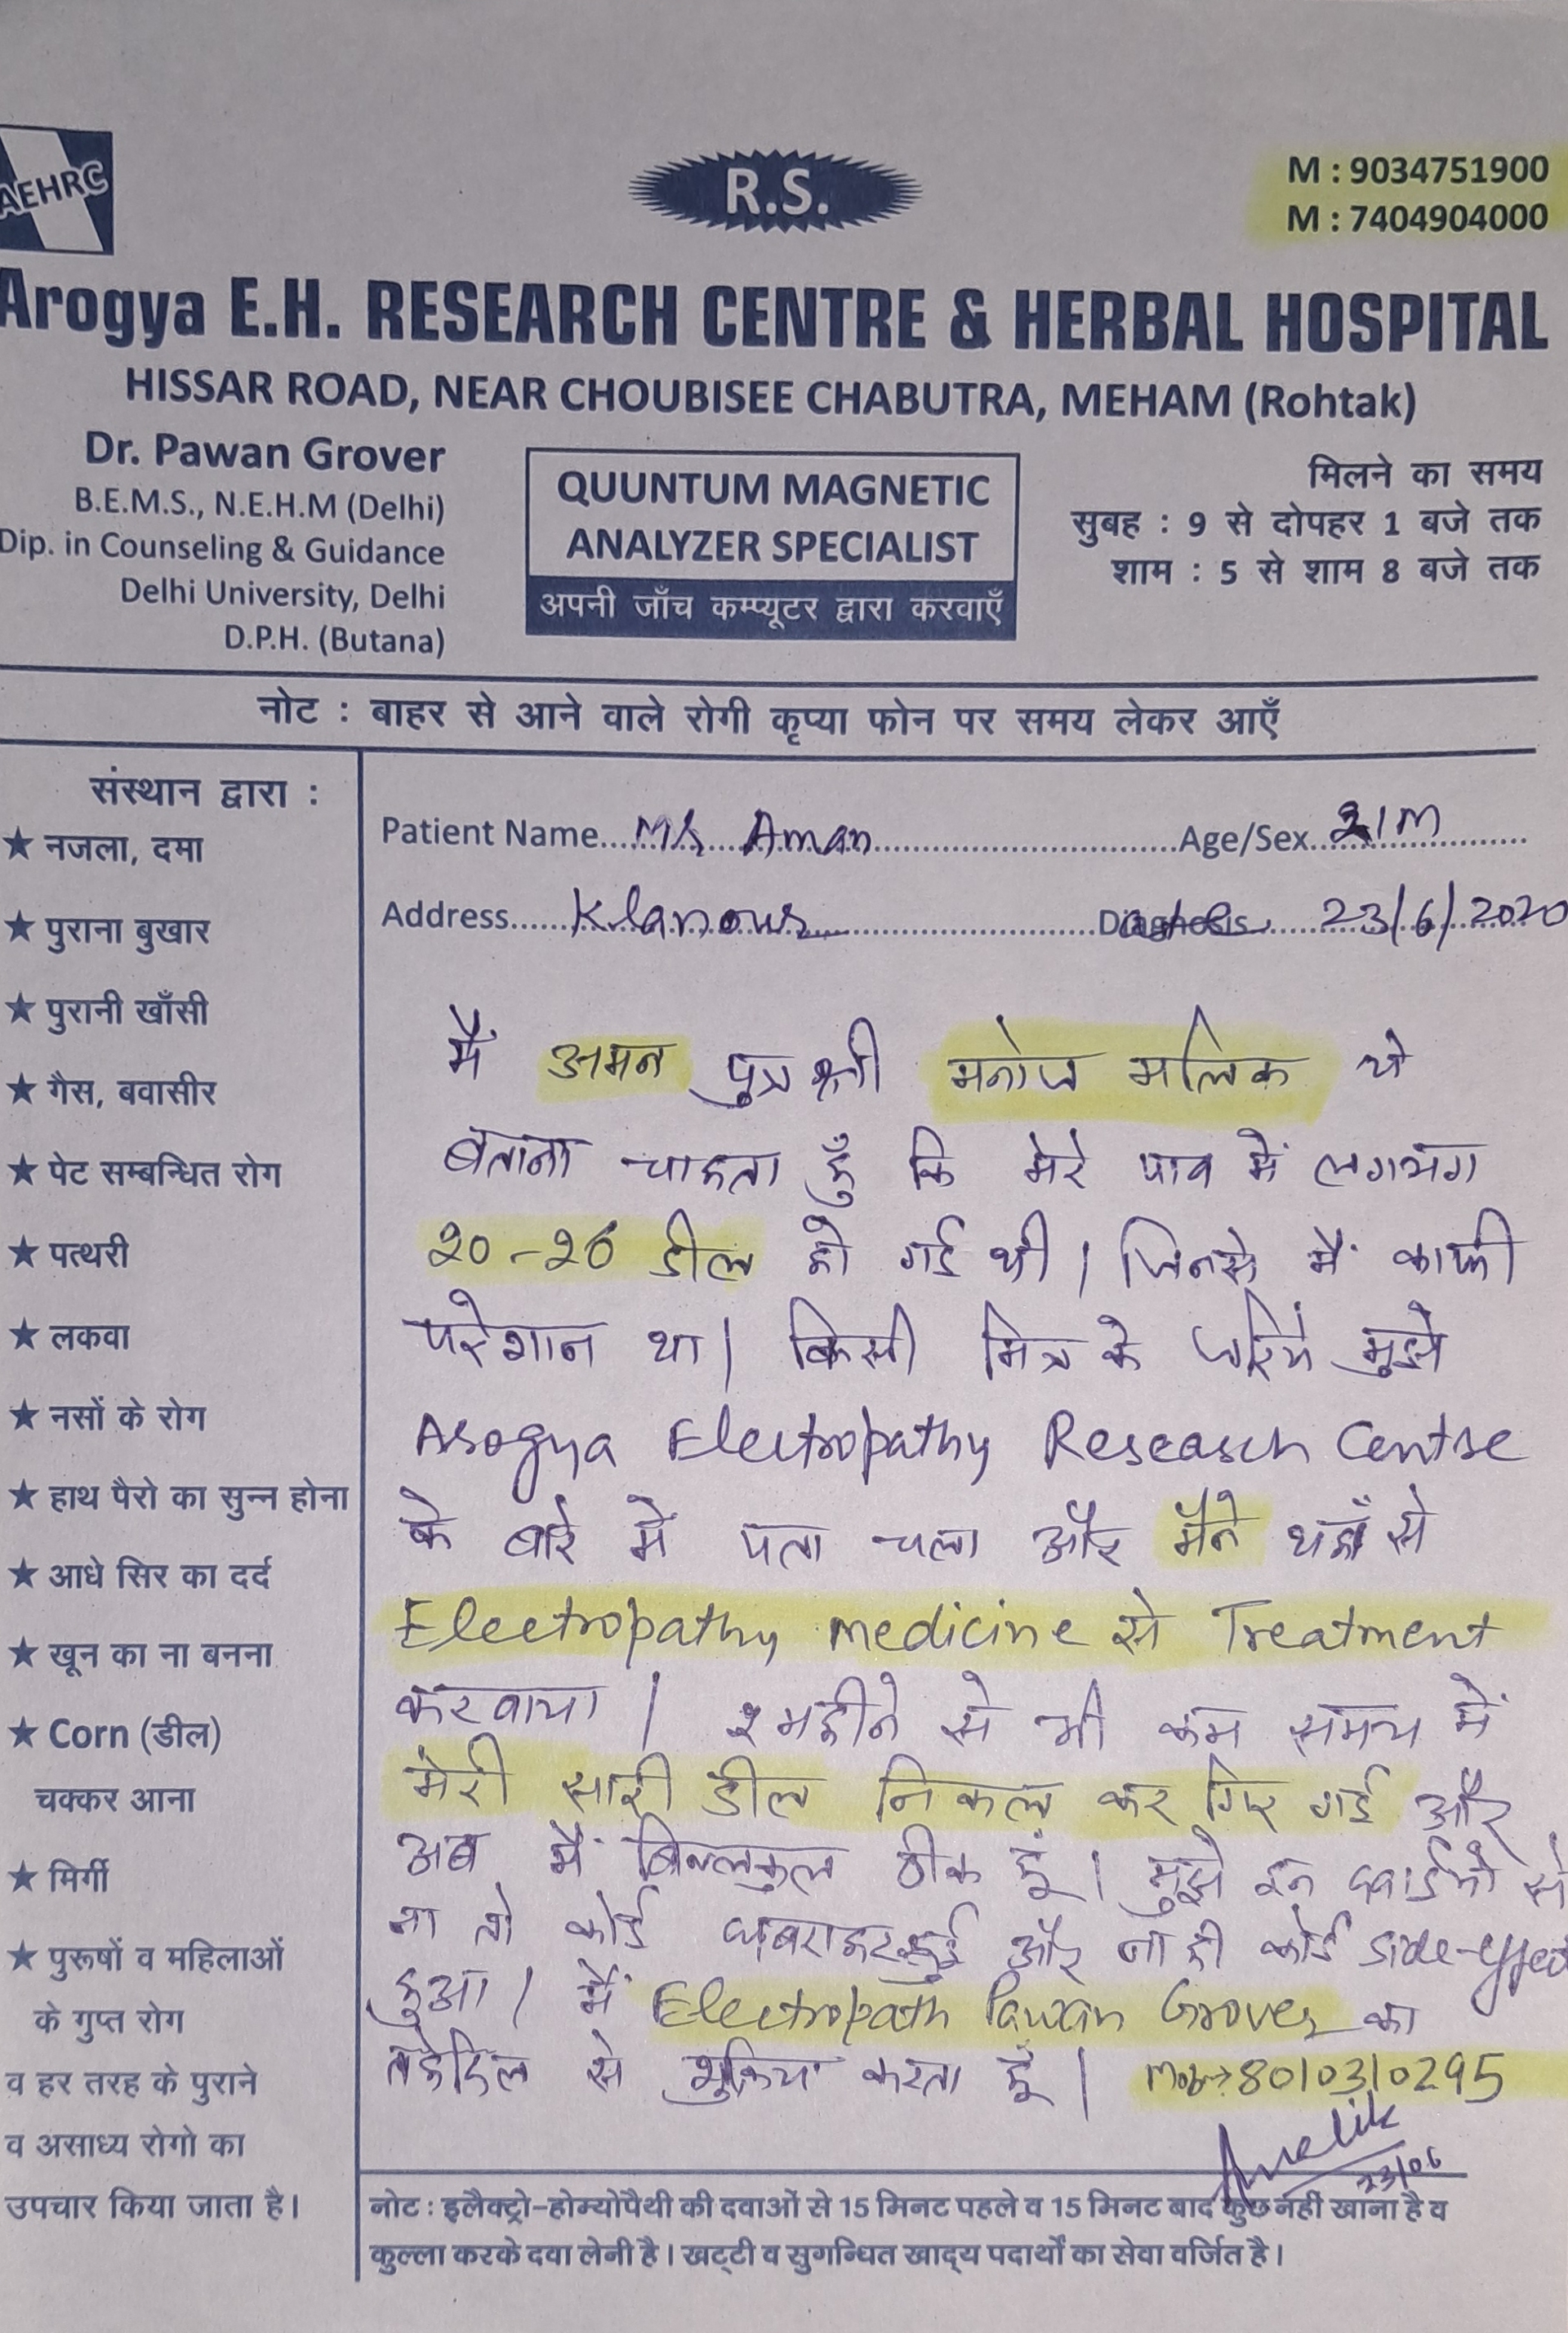 AEHRC
R.S.
M : 9034751900
M : 7404904000
Arogya E.H. RESEARCH CENTRE & HERBAL HOSPITAL
HISSAR ROAD, NEAR CHOUBISEE CHABUTRA, MEHAM (Rohtak)
Dr. Pawan Grover
B.E.M.S., N.E.H.M (Delhi)
Dip. in Counseling & Guidance
Delhi University, Delhi
D.P.H. (Butana)
QUUNTUM MAGNETIC
ANALYZER SPECIALIST
अपनी जाँच कम्प्यूटर द्वारा करवाएँ
मिलने का समय
सुबह : 9 से दोपहर 1 बजे तक
शाम : 5 से शाम 8 बजे तक
नोट : बाहर से आने वाले रोगी कृप्या फोन पर समय लेकर आएँ
संस्थान द्वारा :
★ नजला, दमा
★ पुराना बुखार
★ पुरानी खाँसी
★ गैस, बवासीर
★ पेट सम्बन्धित रोग
★ पत्थरी
★ लकवा
★ नसों के रोग
★ हाथ पैरो का सुन्न होना
★ आधे सिर का दर्द
★ खून का ना बनना
★ Corn (डील)
चक्कर आना
★ मिर्गी
★ पुरूषों व महिलाओं
के गुप्त रोग
व हर तरह के पुराने
व असाध्य रोगो का
उपचार किया जाता है।
Patient Name Mr Aman Age/Sex 21M
Address Diagnosis 23/6/2020
मैं अमन पुत्र श्री मनोज मलिक ये
बताना चाहता हूँ कि मेरे पाव में लगभग
20-26 डील हो गई थी। जिनसे मैं काफी
परेशान था। किसी मित्र के जरिये मुझे
Arogya Electropathy Research Centre
के बारे में पता चला और मैंने यहाँ से
Electropathy medicine से Treatment
करवाया। 2 महीने से भी कम समय में
मेरी सारी डील निकल कर गिर गई और
अब मैं बिल्कुल ठीक हूं। मुझे इन दवाईयों से
ना तो कोई घबराहट हुई और ना ही कोई side-effect
हुआ। मैं Electropath Pawan Grover का
तहेदिल से शुक्रिया करता हूँ। Mob→8010310295
Amalik
23/06
नोट : इलैक्ट्रो-होम्योपैथी की दवाओं से 15 मिनट पहले व 15 मिनट बाद कुछ नहीं खाना है व
कुल्ला करके दवा लेनी है। खट्टी व सुगन्धित खाद्य पदार्थों का सेवा वर्जित है।